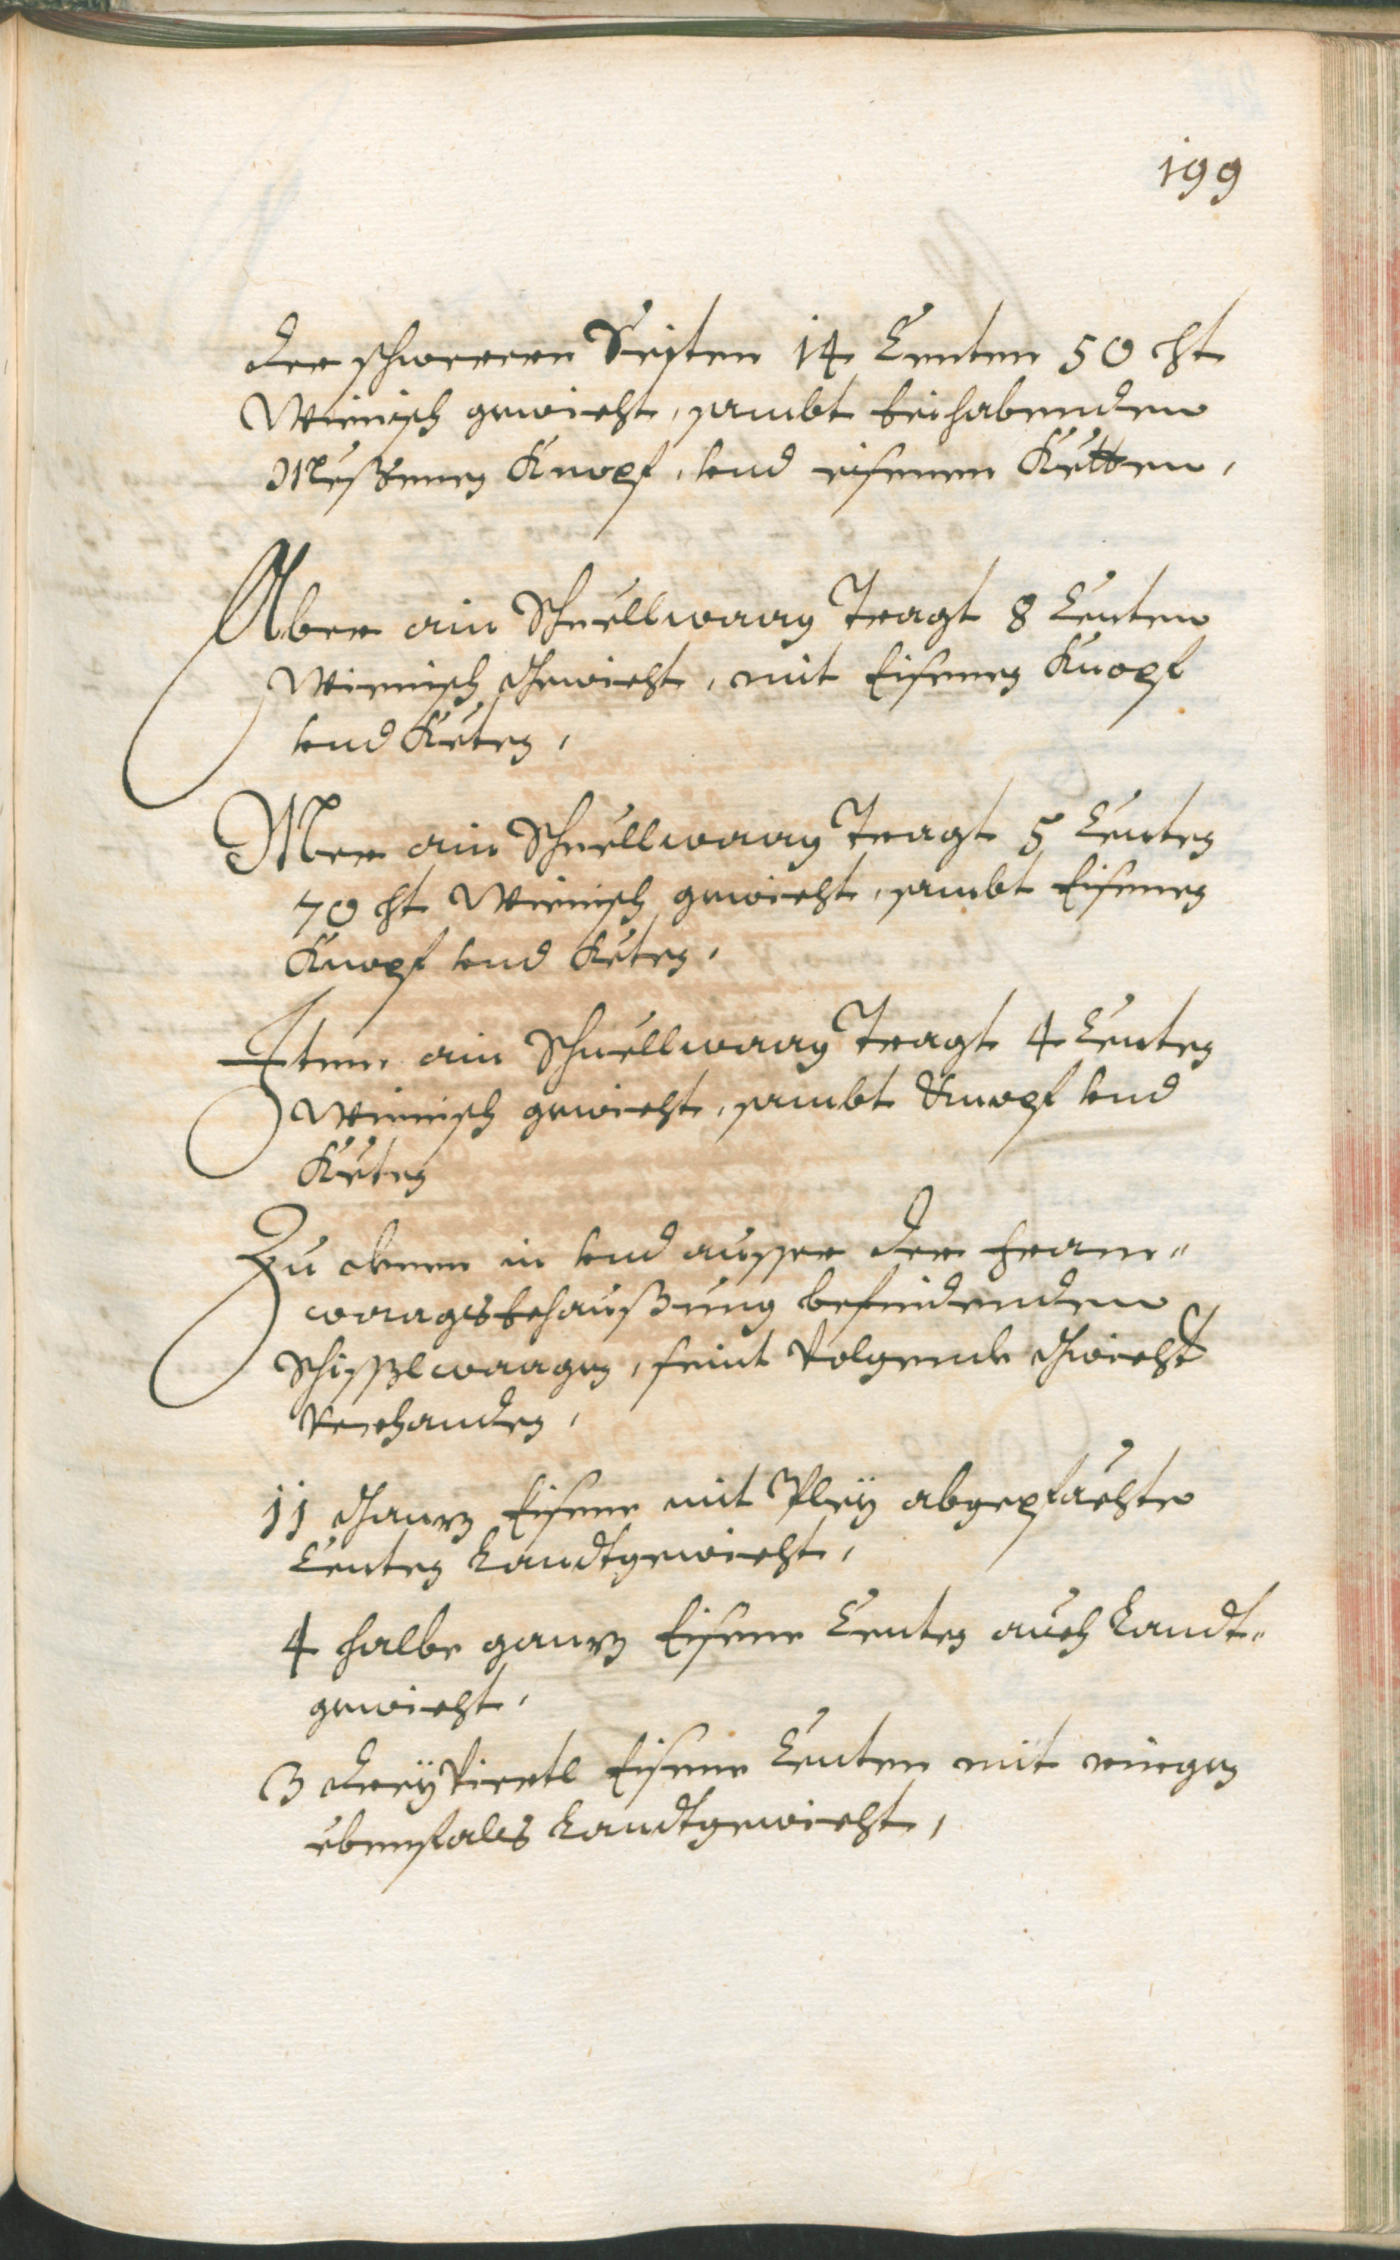 199
der schwerern Seiten 14 Centen 50 ℔
Wienisch gewicht, sambt beihabenden
Meßenen Knopf, vnd eisenen Ketten,
Aber ain Schnellwaag Tragt 8 Centen
Wienisch Gewicht, mit Eisenen Knopf
vnd Keten,
Mer ain Schnellwaag Tragt 5 Centen
70 ℔ Wienisch gewicht, sambt Eisenen
Knopf vnd Keten,
Item ain Schnellwaag Tragt 4 Centen
Wienisch gewicht, sambt Knopf vnd
Keten
Zu denen in vnd ausser der Fron„
waagsbehaußung befindenden
Schisslwaagen, seint Volgende Gwicht
Verhanden,
11 Ganz Eisene mit Pley abgepfächte
Centen Landtgewicht,
4 halbe ganz Eisene Centen auch Landt„
gewicht,
3 dreÿ Viertl Eisene Centen mit ringen
ebenfals Landtgewicht,